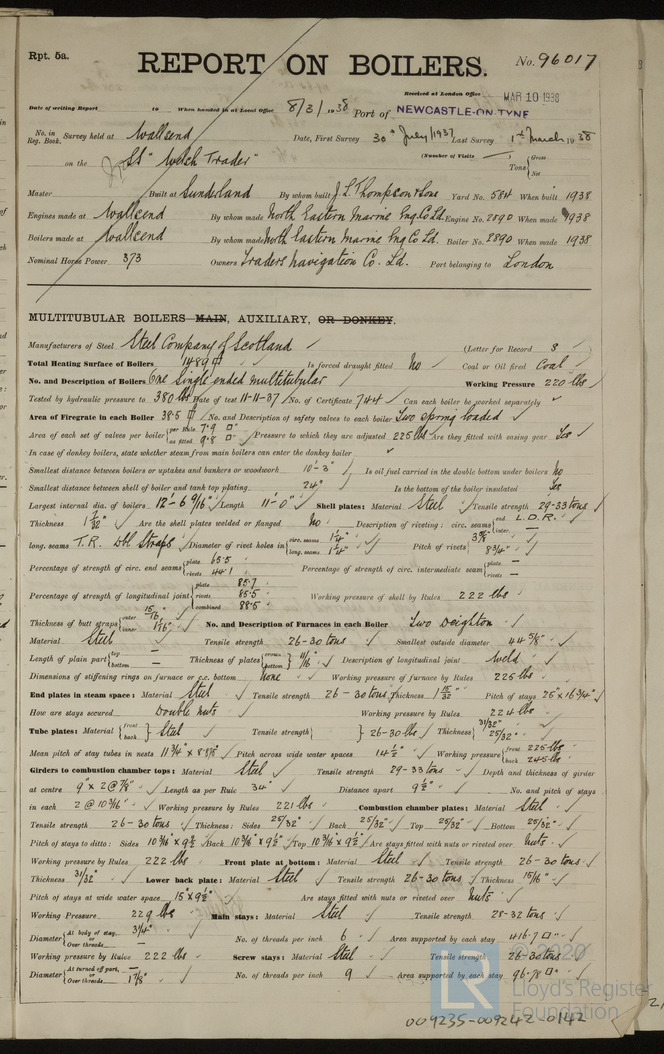 Rpt. 5a.
REPORT ON BOILERS.
No. 96017
Received at London Office MAR 10 1938
Date of writing Report 19 When handed in at Local Office 8/3/1938 Port of NEWCASTLE-ON-TYNE
No. in Reg. Book. Survey held at Wallsend Date, First Survey 30th July 1937 Last Survey 1st March 1938
on the SS "Welsh Trader" (Number of Visits ) Tons { Gross Net
Master Built at Sunderland By whom built J L Thompson & Sons Yard No. 584 When built 1938
Engines made at Wallsend By whom made North Eastern Marine Eng Co Ld. Engine No. 2890 When made 1938
Boilers made at Wallsend By whom made North Eastern Marine Eng Co Ld. Boiler No. 2890 When made 1938
Nominal Horse Power 373 Owners Traders Navigation Co. Ld. Port belonging to London
MULTITUBULAR BOILERS MAIN, AUXILIARY, OR DONKEY.
Manufacturers of Steel Steel Company of Scotland (Letter for Record S )
Total Heating Surface of Boilers 1489 Is forced draught fitted No Coal or Oil fired Coal
No. and Description of Boilers One Single ended multitubular Working Pressure 220 lbs
Tested by hydraulic pressure to 380 lbs Date of test 11-11-37 No. of Certificate 744 Can each boiler be worked separately ✓
Area of Firegrate in each Boiler 38.5 No. and Description of safety valves to each boiler Two spring loaded
Area of each set of valves per boiler { per Rule 7.9 as fitted 9.8 Pressure to which they are adjusted 225 lbs Are they fitted with easing gear Yes
In case of donkey boilers, state whether steam from main boilers can enter the donkey boiler ✓
Smallest distance between boilers or uptakes and bunkers or woodwork 10'-3" Is oil fuel carried in the double bottom under boilers No
Smallest distance between shell of boiler and tank top plating 24" Is the bottom of the boiler insulated Yes
Largest internal dia. of boilers 12'-6 9/16" Length 11'-0" Shell plates: Material Steel Tensile strength 29-33 tons
Thickness 1 7/32" Are the shell plates welded or flanged No Description of riveting: circ. seams { end L.D.R. inter. —
long. seams T.R. Dbl Straps Diameter of rivet holes in { circ. seams 1 1/4" long. seams 1 1/4" Pitch of rivets { 3 5/8" 8 3/4"
Percentage of strength of circ. end seams { plate 65.5 rivets 44.1 Percentage of strength of circ. intermediate seam { plate — rivets —
Percentage of strength of longitudinal joint { plate 85.7 rivets 85.5 combined 88.5 Working pressure of shell by Rules 222 lbs
Thickness of butt straps { outer 15/16" inner 1 1/16" No. and Description of Furnaces in each Boiler Two Deighton
Material Steel Tensile strength 26-30 tons Smallest outside diameter 44 5/8"
Length of plain part { top — bottom — Thickness of plates { crown bottom } 11/16" Description of longitudinal joint Weld
Dimensions of stiffening rings on furnace or c.c. bottom None Working pressure of furnace by Rules 225 lbs
End plates in steam space: Material Steel Tensile strength 26-30 tons Thickness 1 15/32" Pitch of stays 25" x 16 3/4"
How are stays secured Double nuts Working pressure by Rules 224 lbs
Tube plates: Material { front back } Steel Tensile strength { } 26-30 lbs Thickness { 31/32" 25/32"
Mean pitch of stay tubes in nests 11 3/4" x 8 5/8" Pitch across wide water spaces 14 1/2" Working pressure { front 225 lbs back 245 lbs
Girders to combustion chamber tops: Material Steel Tensile strength 29-33 tons Depth and thickness of girder
at centre 9" x 2 @ 7/8" Length as per Rule 34" Distance apart 9 1/2" No. and pitch of stays
in each 2 @ 10 3/16" Working pressure by Rules 221 lbs Combustion chamber plates: Material Steel
Tensile strength 26-30 tons Thickness: Sides 25/32" Back 25/32" Top 25/32" Bottom 25/32"
Pitch of stays to ditto: Sides 10 3/16" x 9 1/2" Back 10 3/16" x 9 1/2" Top 10 3/16" x 9 1/2" Are stays fitted with nuts or riveted over Nuts
Working pressure by Rules 222 lbs Front plate at bottom: Material Steel Tensile strength 26-30 tons
Thickness 31/32" Lower back plate: Material Steel Tensile strength 26-30 tons Thickness 15/16"
Pitch of stays at wide water space 15" x 9 1/2" Are stays fitted with nuts or riveted over Nuts
Working Pressure 229 lbs Main stays: Material Steel Tensile strength 28-32 tons
Diameter { At body of stay, or Over threads 3 1/4" — No. of threads per inch 6 Area supported by each stay 416.7
Working pressure by Rules 222 lbs Screw stays: Material Steel Tensile strength 26-30 tons
Diameter { At turned off part, or Over threads — 1 7/8" No. of threads per inch 9 Area supported by each stay 96.78
© 2020
LR
Lloyd's Register
Foundation
009235-009242-0142